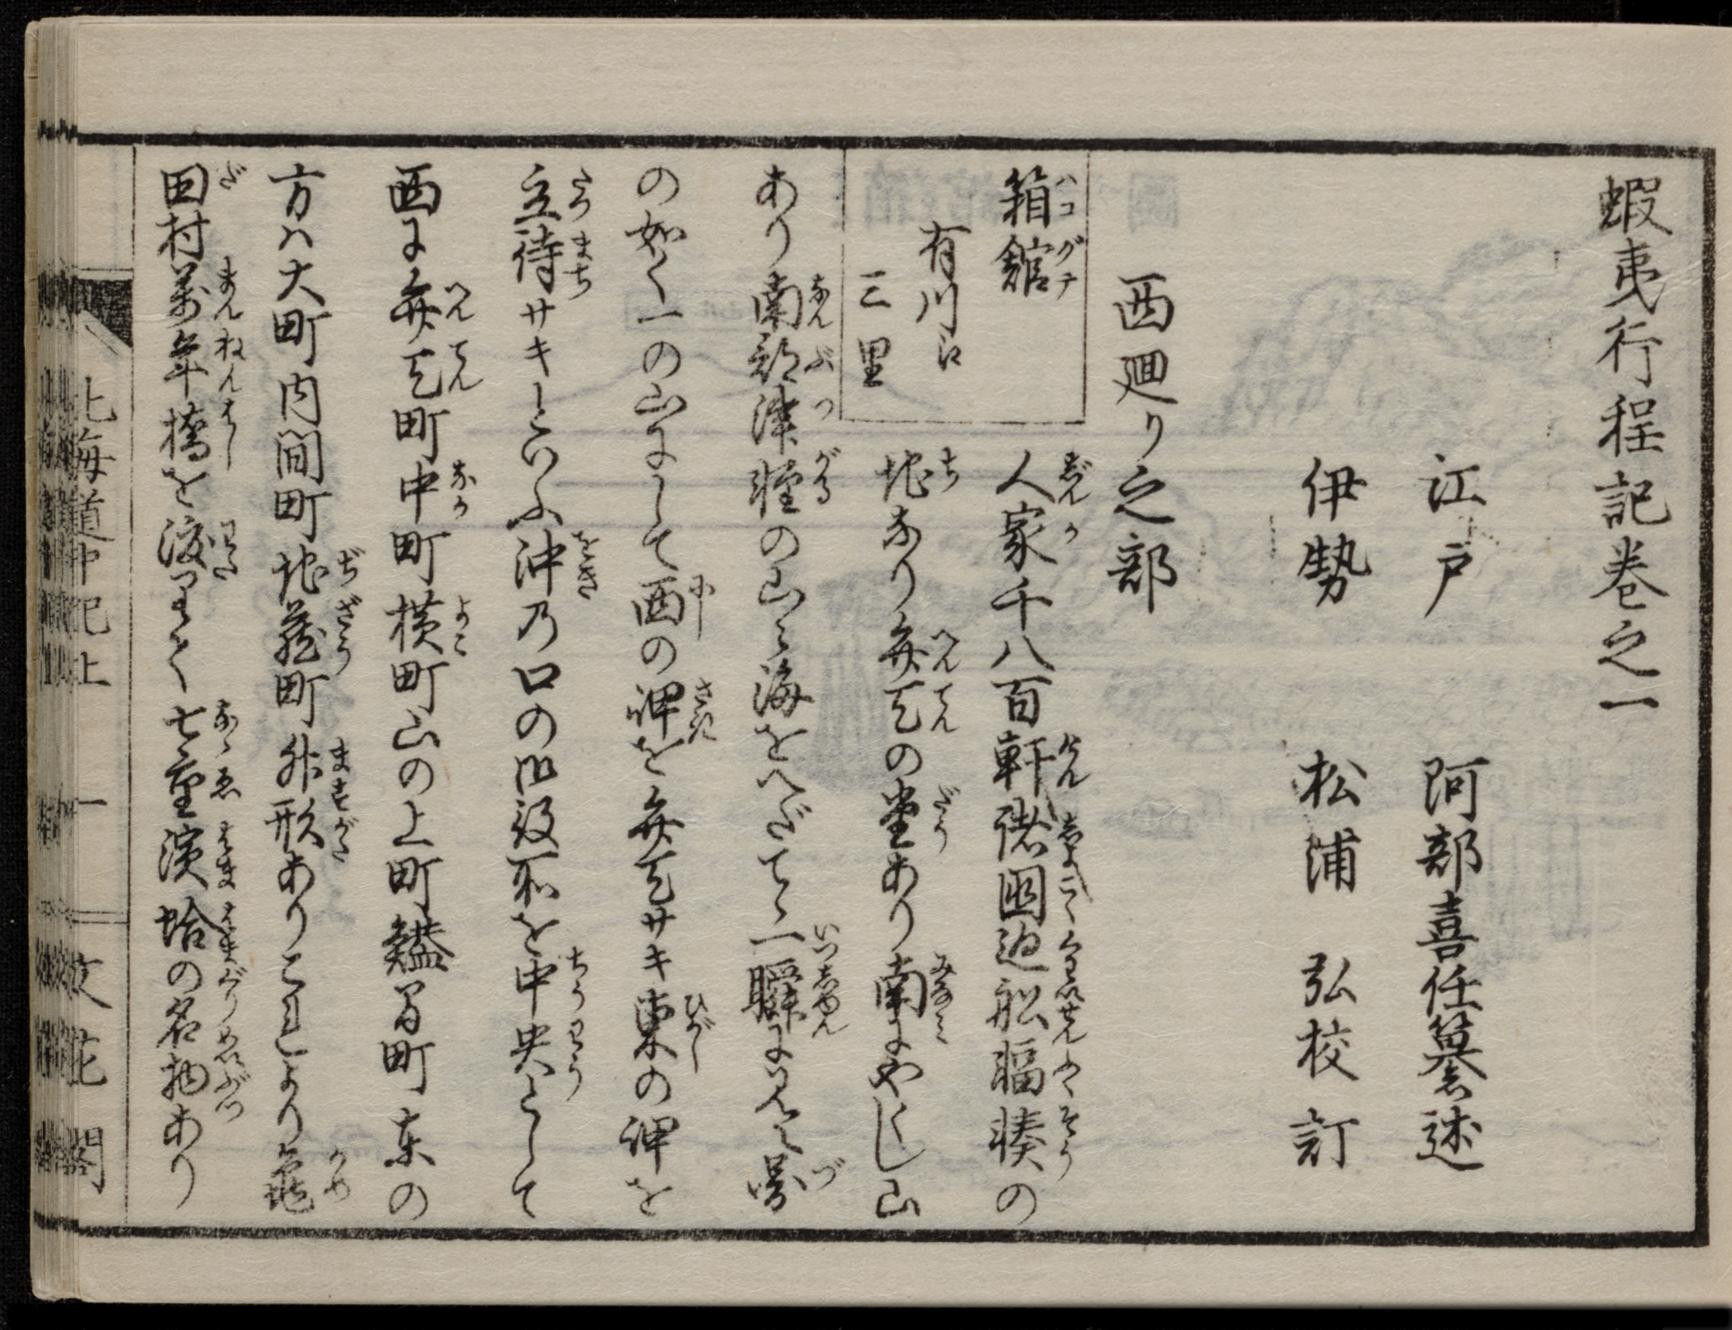 蝦夷行程記巻之一
江戸　阿部喜任纂述
伊勢　松浦　弘校訂
西廻り之部
箱舘
有川江
三里
人家千八百軒諸国廻舩輻輳の
地なり弁天の堂あり南にやくし山
あり南部津軽の山ゝ海をへだてゝ一瞬に見ゝ嶌
の如く一の山にして西の岬を弁天サキ東の岬を
立待サキといふ沖乃口の御役所を中央として
西に弁天町中町横町山の上町
町東の
方ハ大町内間町地蔵町外形ありこれより亀
田村萬年橋を渡りて七重濱蛤の名物あり
北海道中記上　一　文花閣